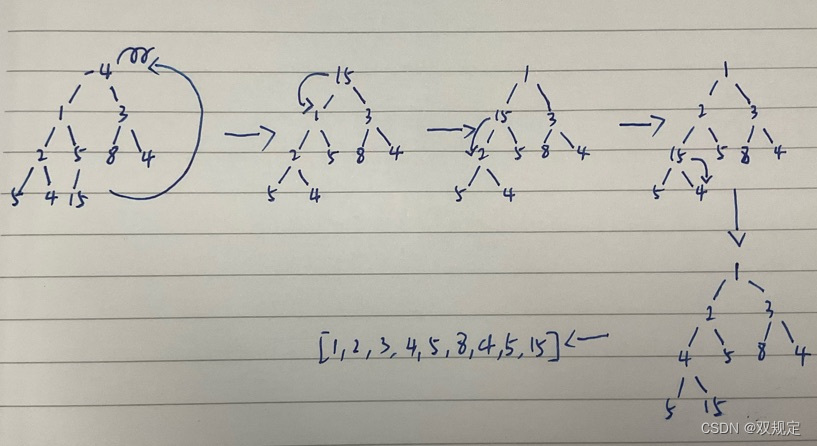 -4 15 1 1
1 3 1 3 15 3 2 3
2 5 8 4 2 5 8 4 2 5 8 4 15 5 8 4
5 4 15 5 4 5 4 5 4
1
2 3
[1,2,3,4,5,8,4,5,15]
4 5 8 4
5 15
CSDN @双规定